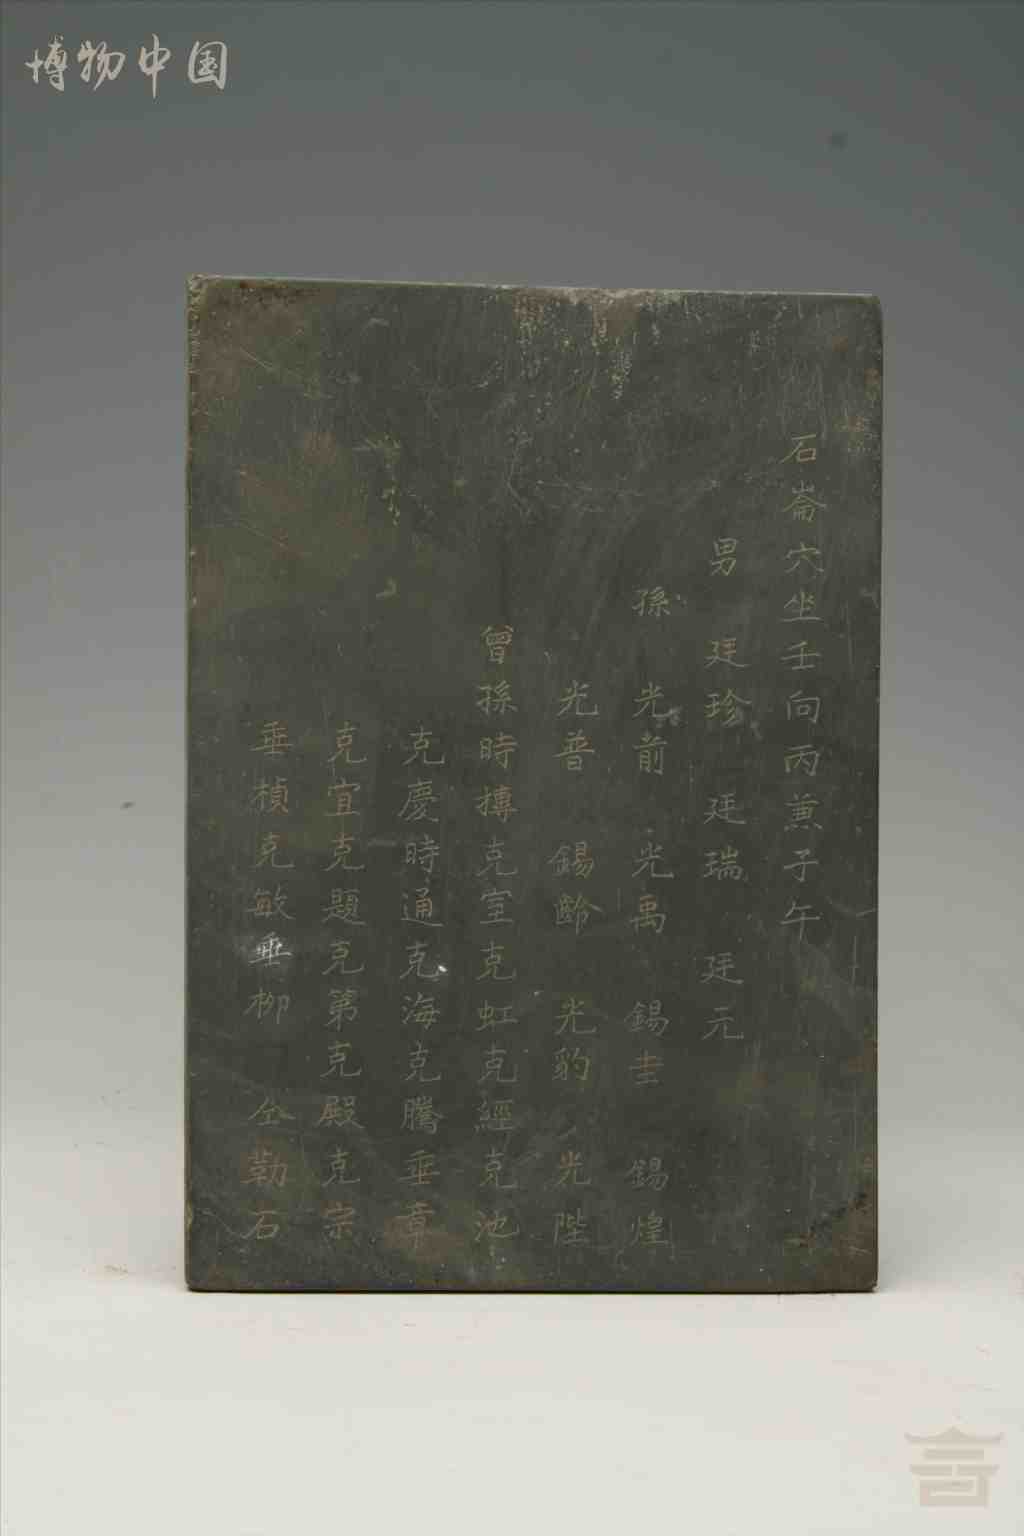 博物中国
石崙穴坐壬向丙兼子午
男 廷珍 廷瑞 廷元
孫 光前 光禹 錫圭 錫煌
光普 錫齡 光豹 光陛
曾孫時摶克室克虹克經克池
克慶時通克海克騰垂章
克宜克題克第克殿克宗
垂楨克敏垂柳 仝勒石